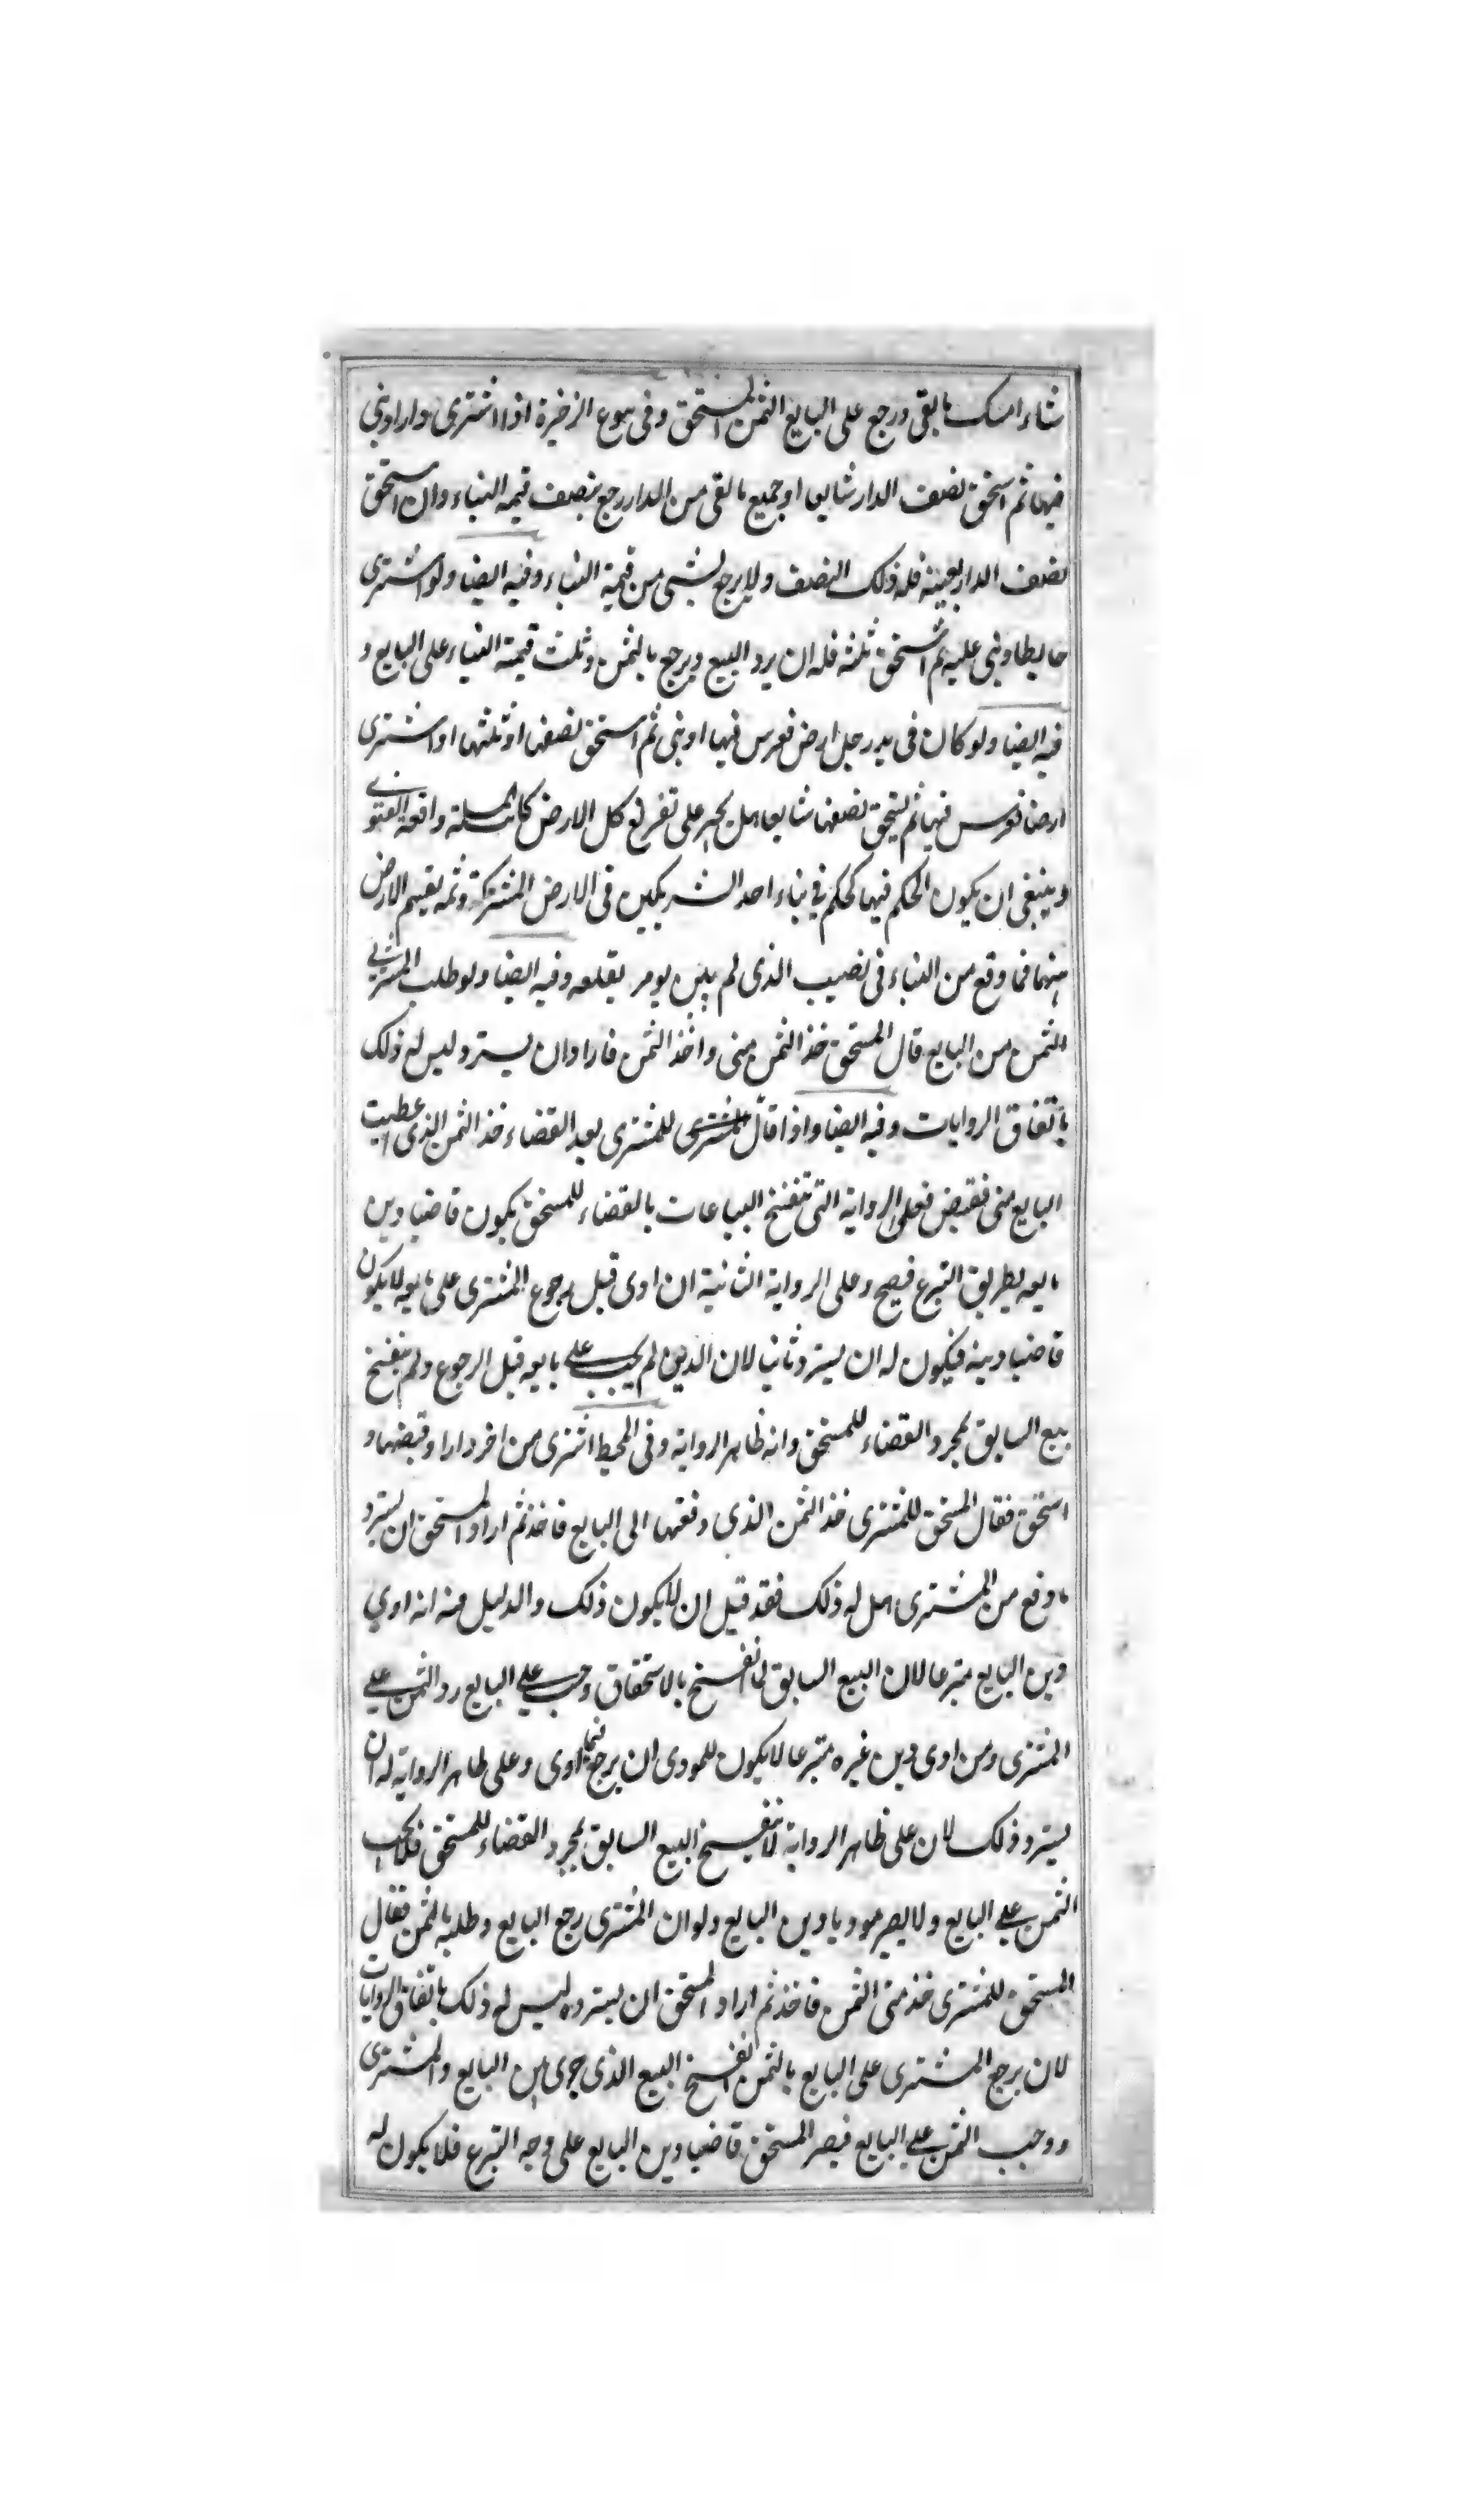 شاء امسك ما بقى ورجع على البايع الثمن المستحق وفى بيوع الزخيرة اذا اشترى دارا وبنى
فيها ثم استحق نصف الدار شايعا او جميع ما بقى من الدار رجع بنصف قيمه البناء وان استحق
نصف الدار بعينه فله ذلك النصف ولا يرجع بشئ من قيمة البناء وفيه ايضا ولو اشترى
حايطا وبنى عليه ثم استحق ثلثه فله ان يرد البيع ويرجع بالثمن وثلث قيمة البناء على البايع و
فيه ايضا ولو كان فى يد رجل ارض فغرس فيها او بنى ثم استحق نصفها او ثلثها او اشترى
ارضا فغرس فيها ثم يستحق نصفها شايعا هل يجبر على تفريغ كل الارض كانت المسئلة واقعة الفتوى
وينبغى ان يكون الحكم فيها كحكم فى بناء احد الشريكين فى الارض المشتركة وثمه يقسم الارض
بينهما فما وقع من البناء فى نصيب الذى لم يبن يومر بقلعه وفيه ايضا ولو طلب المشترى
الثمن من البايع قال المستحق خذ الثمن منى واخذ الثمن فاراد ان يسترد ليس له ذلك
باتفاق الروايات وفيه ايضا واذا قال المشترى للمشترى بعد القضاء خذ الثمن الذى اعطيت
البايع منى فقبض فعلى الرواية التى تنفسخ البياعات بالقضاء للمستحق يكون قاضيا دين
بايعه بطريق التبرع فيصح وعلى الرواية الثانية ان ادى قبل رجوع المشترى على بايعه لا يكون
قاضيا دينه فيكون له ان يسترد ثانيا لان الدين لم يجب على بايعه قبل الرجوع ولم ينفسخ
بيع السابق بمجرد القضاء للمستحق وانه ظاهر الرواية وفى المحيط اشترى من اخر دارا وقبضها و
استحق فقال المستحق للمشترى خذ الثمن الذى دفعتها الى البايع فاخذ ثم اراد المستحق ان يسترد
ما دفع من المشترى هل له ذلك فقد قيل ان لا يكون ذلك والدليل منه انه ادى
دين البايع متبرعا لان البيع السابق لما انفسخ بالاستحقاق وجب على البايع رد الثمن على
المشترى ومن ادى دين غيره متبرعا لا يكون للمودى ان يرجع فيما ادى وعلى ظاهر الرواية له ان
يسترد ذلك لان على ظاهر الرواية لا ينفسخ البيع السابق بمجرد القضاء للمستحق فلا يجب
الثمن على البايع ولا يصير موديا دين البايع ولو ان المشترى رجع البايع وطلبه بالثمن فقال
المستحق للمشترى خذ منى الثمن فاخذ ثم اراد المستحق ان يسترده ليس له ذلك باتفاق الروايات
لان يرجع المشترى على البايع بالثمن انفسخ البيع الذى جرى بين البايع والمشترى
ووجب الثمن على البايع فيصر المستحق قاضيا دين البايع على وجه التبرع فلا يكون له